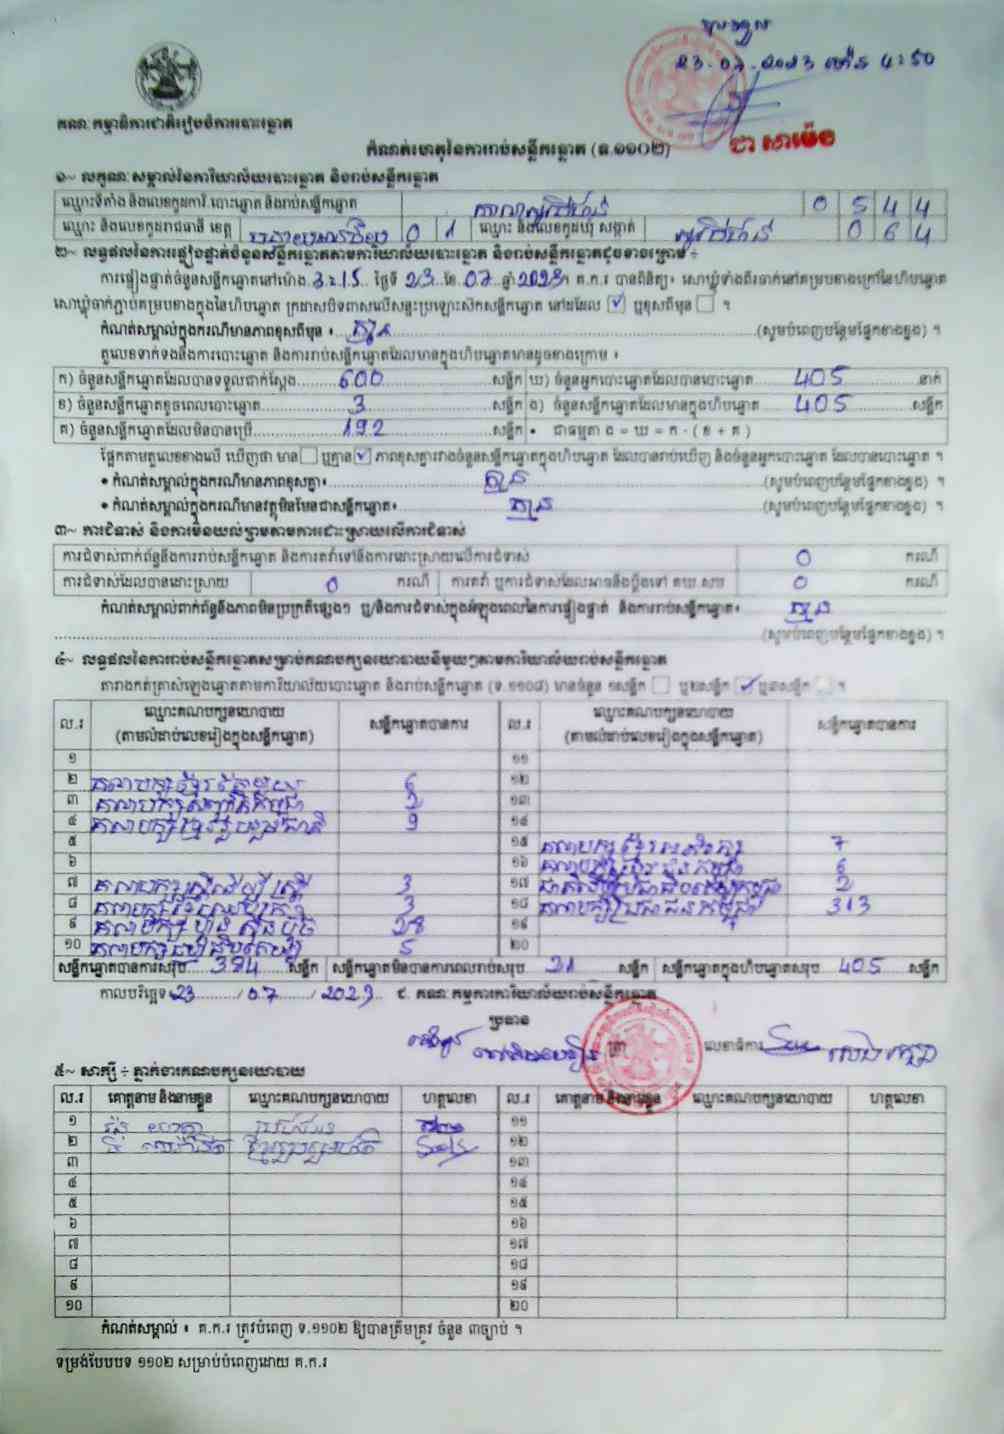 23-07-2023 ម៉ោង 4:50
ជា សាម៉េច
គណៈកម្មាធិការជាតិរៀបចំការបោះឆ្នោត
កំណត់ហេតុនៃការរាប់សន្លឹកឆ្នោត (ទ.១១០២)
១~ លក្ខណៈសម្គាល់នៃការិយាល័យបោះឆ្នោត និងរាប់សន្លឹកឆ្នោត
ឈ្មោះទីតាំង និងលេខកូដការិ.បោះឆ្នោត និងរាប់សន្លឹកឆ្នោត 0 5 4 4
ឈ្មោះ និងលេខកូដរាជធានី ខេត្ត បន្ទាយមានជ័យ 0 1 ឈ្មោះ និងលេខកូដឃុំ សង្កាត់ 0 6 4
២~ លទ្ធផលនៃការផ្ទៀងផ្ទាត់ចំនួនសន្លឹកឆ្នោតតាមការិយាល័យបោះឆ្នោត និងរាប់សន្លឹកឆ្នោតដូចខាងក្រោម ÷
ការផ្ទៀងផ្ទាត់ចំនួនសន្លឹកឆ្នោតនៅម៉ោង 3:15 ថ្ងៃទី 23 ខែ 07 ឆ្នាំ 2023 គ.ក.រ បានពិនិត្យ៖ សោឃ្មុំទាំងពីរចាក់នៅគម្របខាងក្រៅនៃហិបឆ្នោត
សោឃ្មុំចាក់ភ្ជាប់គម្របខាងក្នុងនៃហិបឆ្នោត ក្រដាសបិទពាសលើសន្ទះប្រឡោះស៊កសន្លឹកឆ្នោត នៅដដែល ✓ ឬខុសពីមុន ។
កំណត់សម្គាល់ក្នុងករណីមានភាពខុសពីមុន ៖ គ្មាន (សូមបំពេញបន្ថែមផ្នែកខាងខ្នង) ។
តួលេខទាក់ទងនឹងការបោះឆ្នោត និងការរាប់សន្លឹកឆ្នោតដែលមានក្នុងហិបឆ្នោតមានដូចខាងក្រោម ៖
ក) ចំនួនសន្លឹកឆ្នោតដែលបានទទួលជាក់ស្តែង 600 សន្លឹក ឃ) ចំនួនអ្នកបោះឆ្នោតដែលបានបោះឆ្នោត 405 នាក់
ខ) ចំនួនសន្លឹកឆ្នោតខូចពេលបោះឆ្នោត 3 សន្លឹក ង) ចំនួនសន្លឹកឆ្នោតដែលមានក្នុងហិបឆ្នោត 405 សន្លឹក
គ) ចំនួនសន្លឹកឆ្នោតដែលមិនបានប្រើ 192 សន្លឹក • ជាធម្មតា ង = ឃ = ក - ( ខ + គ )
ផ្អែកតាមតួលេខខាងលើ ឃើញថា មាន ឬគ្មាន ✓ ភាពខុសគ្នារវាងចំនួនសន្លឹកឆ្នោតក្នុងហិបឆ្នោត ដែលបានរាប់ឃើញ និងចំនួនអ្នកបោះឆ្នោត ដែលបានបោះឆ្នោត ។
• កំណត់សម្គាល់ក្នុងករណីមានភាពខុសគ្នា៖ គ្មាន (សូមបំពេញបន្ថែមផ្នែកខាងខ្នង) ។
• កំណត់សម្គាល់ក្នុងករណីមានវត្ថុមិនមែនជាសន្លឹកឆ្នោត៖ គ្មាន (សូមបំពេញបន្ថែមផ្នែកខាងខ្នង) ។
៣~ ការជំទាស់ និងការមិនយល់ព្រមតាមការដោះស្រាយលើការជំទាស់
ការជំទាស់ពាក់ព័ន្ធនឹងការរាប់សន្លឹកឆ្នោត និងការតវ៉ាទៅនឹងការដោះស្រាយលើការជំទាស់ 0 ករណី
ការជំទាស់ដែលបានដោះស្រាយ 0 ករណី ការតវ៉ា ឬការជំទាស់ដែលអាចនឹងប្តឹងទៅ គឃ.សប 0 ករណី
កំណត់សម្គាល់ពាក់ព័ន្ធនឹងភាពមិនប្រក្រតីផ្សេងៗ ឬ/និងការជំទាស់ក្នុងអំឡុងពេលនៃការផ្ទៀងផ្ទាត់ និងការរាប់សន្លឹកឆ្នោត៖ គ្មាន
(សូមបំពេញបន្ថែមផ្នែកខាងខ្នង) ។
៤~ លទ្ធផលនៃការរាប់សន្លឹកឆ្នោតសម្រាប់គណបក្សនយោបាយនីមួយៗតាមការិយាល័យរាប់សន្លឹកឆ្នោត
តារាងកត់ត្រាសំឡេងឆ្នោតតាមការិយាល័យបោះឆ្នោត និងរាប់សន្លឹកឆ្នោត (ទ.១១០៨) មានចំនួន ១សន្លឹក ឬ២សន្លឹក ✓ ឬ៣សន្លឹក ។
ល.រ ឈ្មោះគណបក្សនយោបាយ (តាមលំដាប់លេខរៀងក្នុងសន្លឹកឆ្នោត) សន្លឹកឆ្នោតបានការ ល.រ ឈ្មោះគណបក្សនយោបាយ (តាមលំដាប់លេខរៀងក្នុងសន្លឹកឆ្នោត) សន្លឹកឆ្នោតបានការ
១ ១១
២ គណបក្ស ខ្មែរ 6 ១២
៣ គណបក្ស 2 ១៣
៤ គណបក្សខ្មែររួបរួមជាតិ 9 ១៤
៥ ១៥ គណបក្ស ខ្មែរ 7
៦ ១៦ គណបក្ស 6
៧ គណបក្ស 3 ១៧ 2
៨ គណបក្ស 3 ១៨ គណបក្សប្រជាជនកម្ពុជា 313
៩ គណបក្ស ហ៊្វុនស៊ិនប៉ិច 28 ១៩
១០ គណបក្ស 5 ២០
សន្លឹកឆ្នោតបានការសរុប 384 សន្លឹក សន្លឹកឆ្នោតមិនបានការពេលរាប់សរុប 21 សន្លឹក សន្លឹកឆ្នោតក្នុងហិបឆ្នោតសរុប 405 សន្លឹក
កាលបរិច្ឆេទ 23 / 07 / 2023 ៥. គណៈកម្មការការិយាល័យរាប់សន្លឹកឆ្នោត
ប្រធាន
លេខាធិការ
៥~ សាក្សី ÷ ភ្នាក់ងារគណបក្សនយោបាយ
ល.រ គោត្តនាម និងនាមខ្លួន ឈ្មោះគណបក្សនយោបាយ ហត្ថលេខា ល.រ គោត្តនាម និងនាមខ្លួន ឈ្មោះគណបក្សនយោបាយ ហត្ថលេខា
១ ១១
២ ១២
៣ ១៣
៤ ១៤
៥ ១៥
៦ ១៦
៧ ១៧
៨ ១៨
៩ ១៩
១០ ២០
កំណត់សម្គាល់ ៖ គ.ក.រ ត្រូវបំពេញ ទ.១១០២ ឱ្យបានត្រឹមត្រូវ ចំនួន ៣ច្បាប់ ។
ទម្រង់បែបបទ ១១០២ សម្រាប់បំពេញដោយ គ.ក.រ